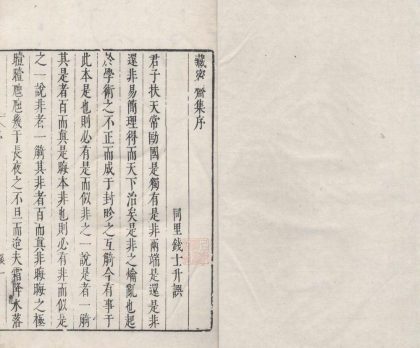 藏密齋集序
同里錢士升譔
君子扶天常勖國是獨有是非兩端是還是非
還非易簡理得而天下治矣是非之爚亂也起
於學術之不正而成于封畛之互觭今有事于
此本是也則必有是而似非之一說是者一觭
其是者百而真是晦本非也則必有非而似是
之一說非者一觭其非者百而真非晦晦之極
曀曀虺虺幾于長夜之不旦而迨夫霜降水落